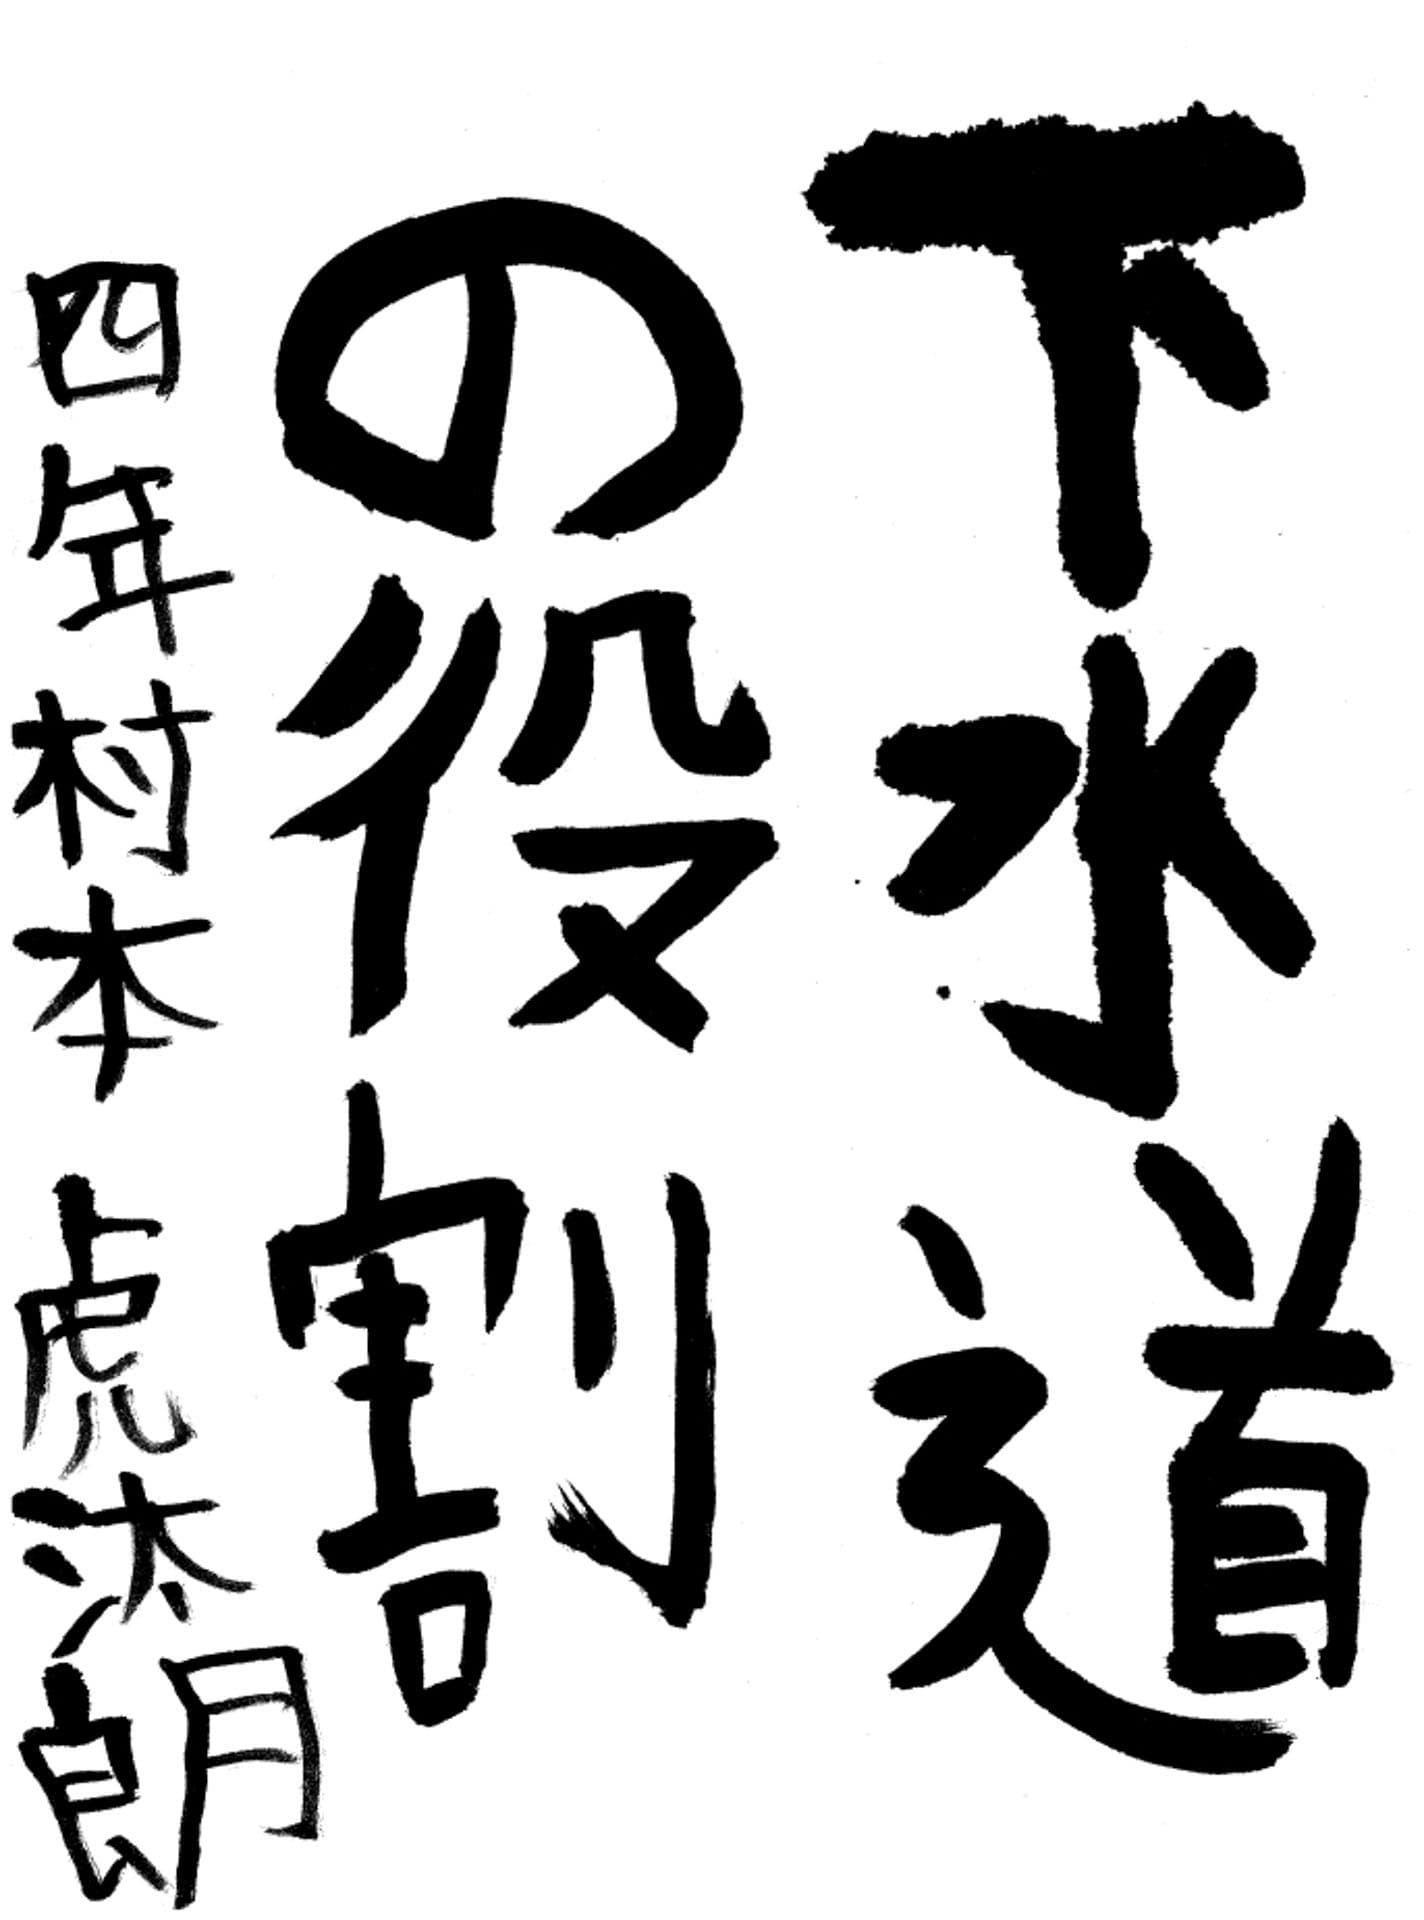 下水道
の役割
四年村本虎汰朗